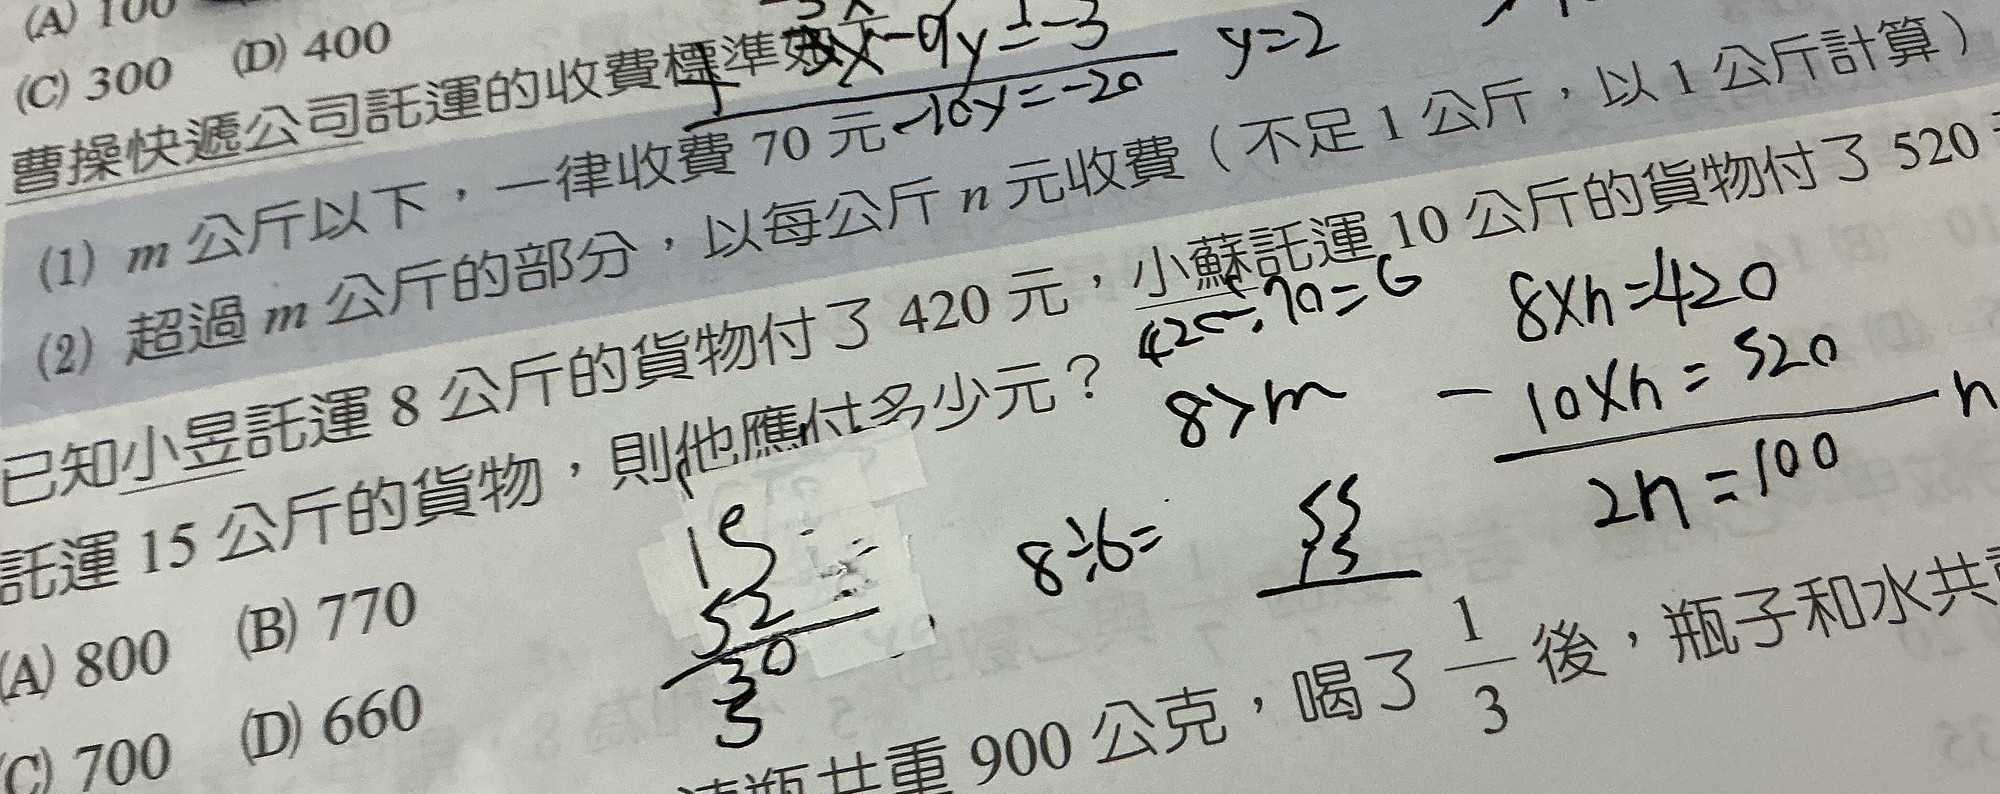 (A) 100
(C) 300 (D) 400
3x-9y=-3
-10y=-20 y=2
曹操快遞公司託運的收費標準如下
(1) m 公斤以下，一律收費 70 元
(2) 超過 m 公斤的部分，以每公斤 n 元收費（不足 1 公斤，以 1 公斤計算）
已知小昱託運 8 公斤的貨物付了 420 元，小蘇託運 10 公斤的貨物付了 520
託運 15 公斤的貨物，則他應付多少元？
420÷70=6
8>m
8÷6=
8×n=420
- 10×n=520
2n=100
n
15
52
30
(A) 800 (B) 770
(C) 700 (D) 660
連瓶共重 900 公克，喝了 1/3 後，瓶子和水共